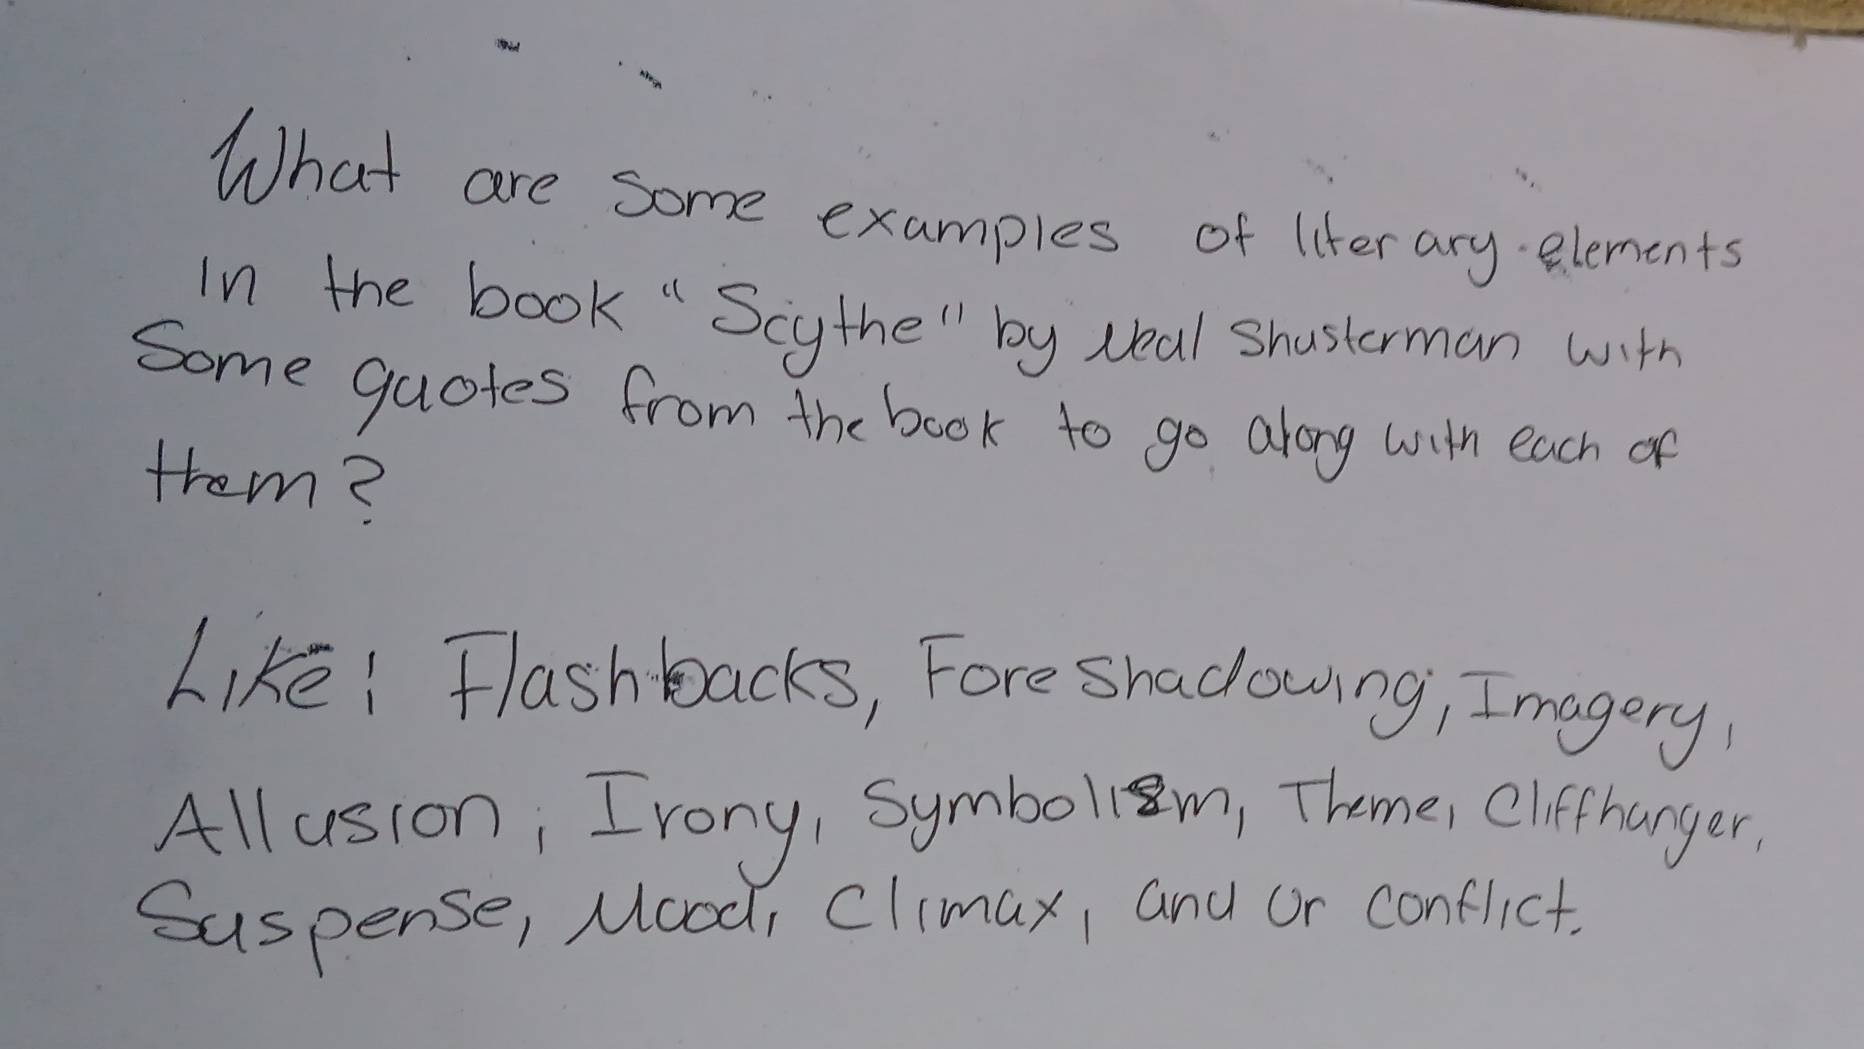 What are some examples of literary elements
in the book "Scythe" by Neal Shusterman with
Some quotes from the book to go along with each of
them?
Like: Flashbacks, Foreshadowing, Imagery,
Allusion, Irony, Symbolism, Theme, Cliffhanger,
Suspense, Mood, Climax, and or conflict.